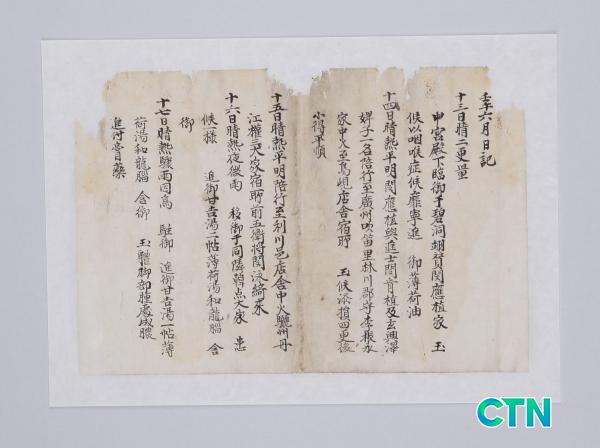 壬午六月日記
十三日晴二更量
中宮殿下臨御于碧洞翊贊閔應植家 玉
候以咽喉症候靡寧進 御薄荷油
十四日晴熱平明閔應植與進士閔肯植及玄興澤
婢子一名陪行至廣州吹笛里林川郡守李根永
家中火至鳥峴店舍宿所 玉候添損四更後
小得平順
十五日晴熱平明陪行至利川邑店舍中火驪州丹
江權吏家宿所前五衛將閔泳綺來
十六日晴熱夜微雨 移御于同隣韓占大家 患
候一樣 進御甘吉湯二帖薄荷湯和龍腦 含
御
十七日晴熱驟雨因爲 駐御 進御甘吉湯一帖薄
荷湯和龍腦 含御 玉體脚部腫處成膿
進付膏藥
CTN